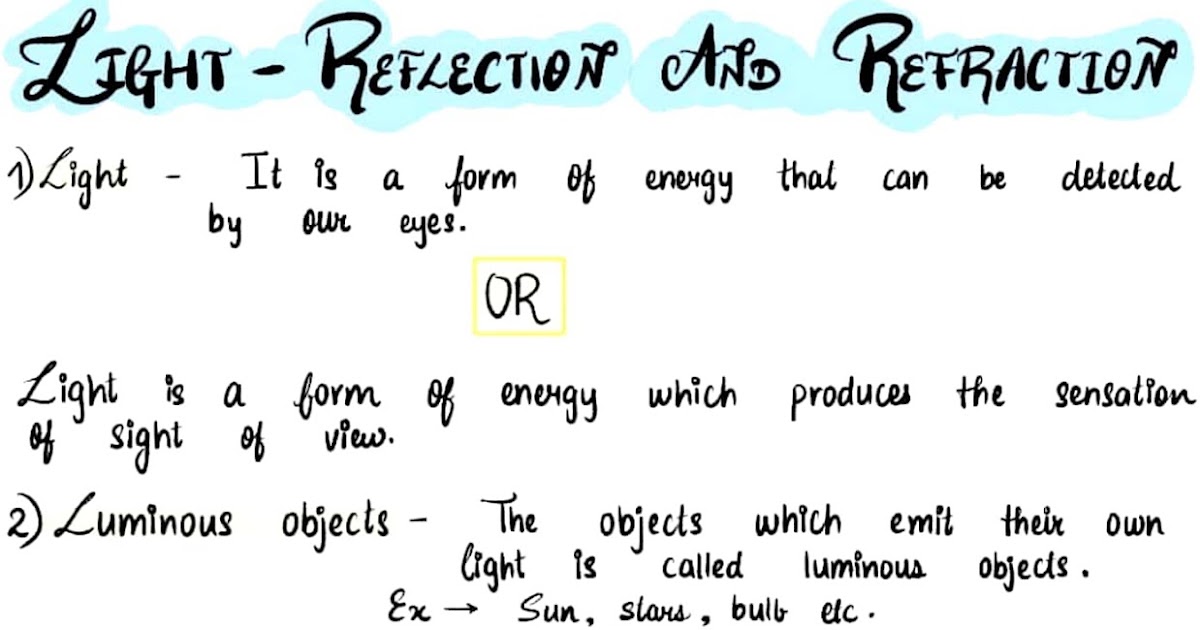 LIGHT - REFLECTION AND REFRACTION
1) Light - It is a form of energy that can be detected
by our eyes.
OR
Light is a form of energy which produces the sensation
of sight of view.
2) Luminous objects - The objects which emit their own
light is called luminous objects.
Ex → Sun, stars, bulb etc.